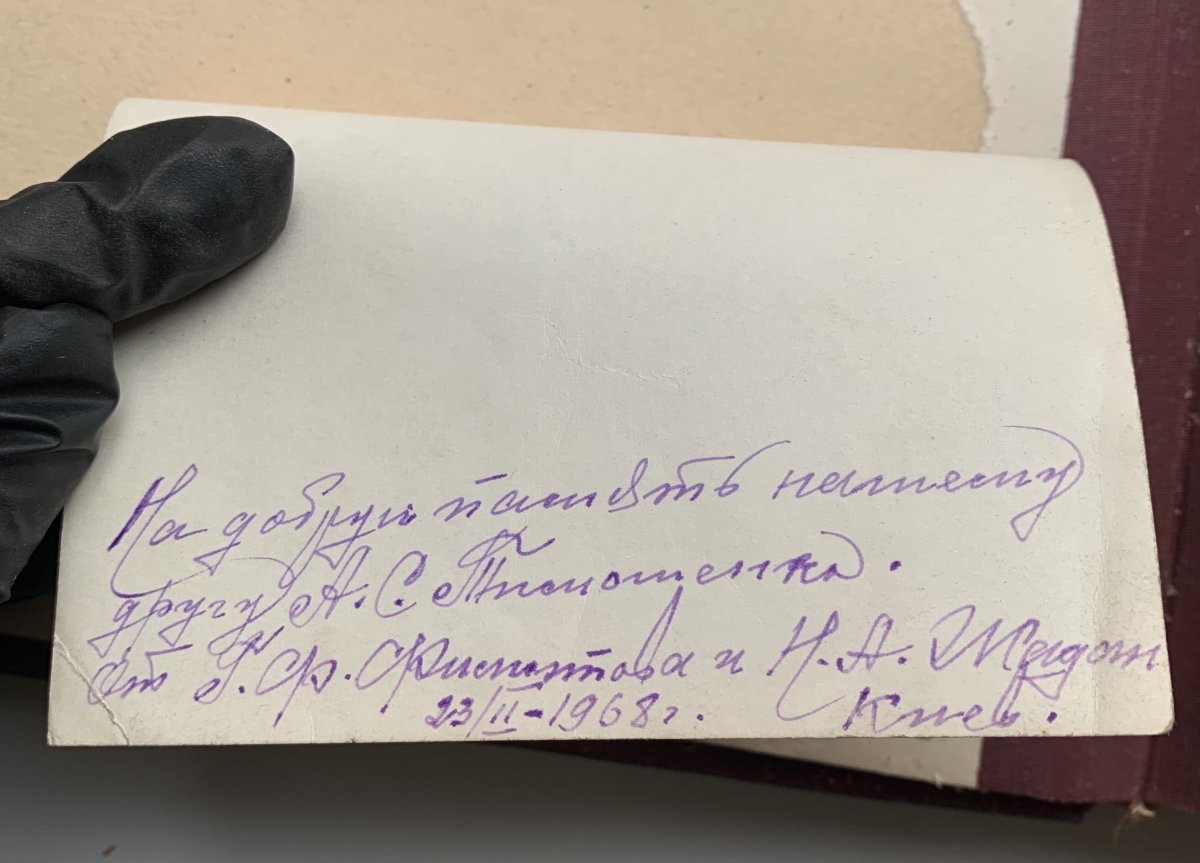 На добрую память нашему
другу А. С. Тимошенко.
от Г. Ф. и Н. А. Жадан
23/II-1968 г. Киев.